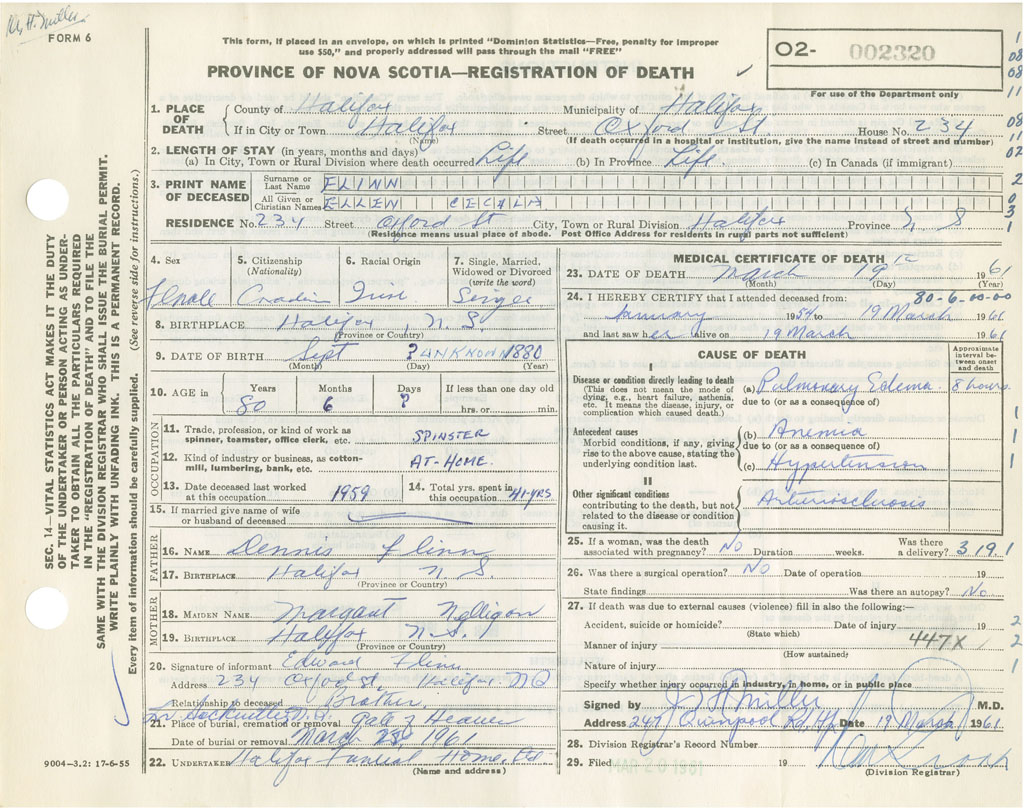 FORM 6
This form, if placed in an envelope, on which is printed "Dominion Statistics—Free, penalty for improper
use $50," and properly addressed will pass through the mail "FREE"
PROVINCE OF NOVA SCOTIA—REGISTRATION OF DEATH
02- 002320
For use of the Department only
1. PLACE OF DEATH { County of Halifax Municipality of Halifax
If in City or Town Halifax Street Oxford St. House No. 234
(Name) (If death occurred in a hospital or institution, give the name instead of street and number)
2. LENGTH OF STAY (in years, months and days)
(a) In City, Town or Rural Division where death occurred Life (b) In Province Life (c) In Canada (if immigrant)
3. PRINT NAME OF DECEASED
Surname or Last Name FLINN
All Given or Christian Names ELLEN CECALIA
RESIDENCE No. 234 Street Oxford St City, Town or Rural Division Halifax Province N S
(Residence means usual place of abode. Post Office Address for residents in rural parts not sufficient)
4. Sex Female
5. Citizenship (Nationality)
6. Racial Origin
7. Single, Married, Widowed or Divorced (write the word) Single
8. BIRTHPLACE Halifax, N.S.
(Province or Country)
9. DATE OF BIRTH Sept ? UNKNOWN 1880
(Month) (Day) (Year)
10. AGE in Years 80 Months 6 Days ? If less than one day old hrs. or min.
OCCUPATION
11. Trade, profession, or kind of work as spinner, teamster, office clerk, etc. SPINSTER
12. Kind of industry or business, as cotton-mill, lumbering, bank, etc. AT-HOME.
13. Date deceased last worked at this occupation 1959
14. Total yrs. spent in this occupation 41-YRS
15. If married give name of wife or husband of deceased
FATHER
16. NAME Dennis Flinn
17. BIRTHPLACE Halifax N. S.
(Province or Country)
MOTHER
18. MAIDEN NAME Margaret Nelligan
19. BIRTHPLACE Halifax N.S.
(Province or Country)
20. Signature of informant Edward Flinn
Address 234 Oxford St, Halifax
Relationship to deceased Brother
21. Place of burial, cremation or removal Gate of Heaven
Date of burial or removal March 1961
22. UNDERTAKER Halifax Funeral Home Ltd
(Name and address)
9004—3.2: 17-6-55
MEDICAL CERTIFICATE OF DEATH
23. DATE OF DEATH March 19 1961
(Month) (Day) (Year)
80-6-00-00
24. I HEREBY CERTIFY that I attended deceased from:
January 1954 to 19 March 1961
and last saw her alive on 19 March 1961
CAUSE OF DEATH
Approximate interval between onset and death
I
Disease or condition directly leading to death
(This does not mean the mode of dying, e.g., heart failure, asthenia, etc. It means the disease, injury, or complication which caused death.)
(a) Pulmonary Edema 8 hours
due to (or as a consequence of)
Antecedent causes
Morbid conditions, if any, giving rise to the above cause, stating the underlying condition last.
(b) Anemia
due to (or as a consequence of)
(c) Hypertension
II
Other significant conditions
contributing to the death, but not related to the disease or condition causing it.
Arteriosclerosis
25. If a woman, was the death associated with pregnancy? No Duration weeks. Was there a delivery? 3191
26. Was there a surgical operation? No Date of operation 19
State findings Was there an autopsy? No
27. If death was due to external causes (violence) fill in also the following:—
Accident, suicide or homicide? Date of injury 19
(State which)
447X
Manner of injury
(How sustained)
Nature of injury
Specify whether injury occurred in industry, in home, or in public place
Signed by Miller M.D.
Address 247 Quinpool Rd, Hfx Date 19 March 1961
28. Division Registrar's Record Number
29. Filed MAR 20 1961 19
(Division Registrar)
SEC. 14—VITAL STATISTICS ACT MAKES IT THE DUTY
OF THE UNDERTAKER OR PERSON ACTING AS UNDER-
TAKER TO OBTAIN ALL THE PARTICULARS REQUIRED
IN THE "REGISTRATION OF DEATH" AND TO FILE THE
SAME WITH THE DIVISION REGISTRAR WHO SHALL ISSUE THE BURIAL PERMIT.
WRITE PLAINLY WITH UNFADING INK. THIS IS A PERMANENT RECORD.
Every item of information should be carefully supplied. (See reverse side for instructions.)